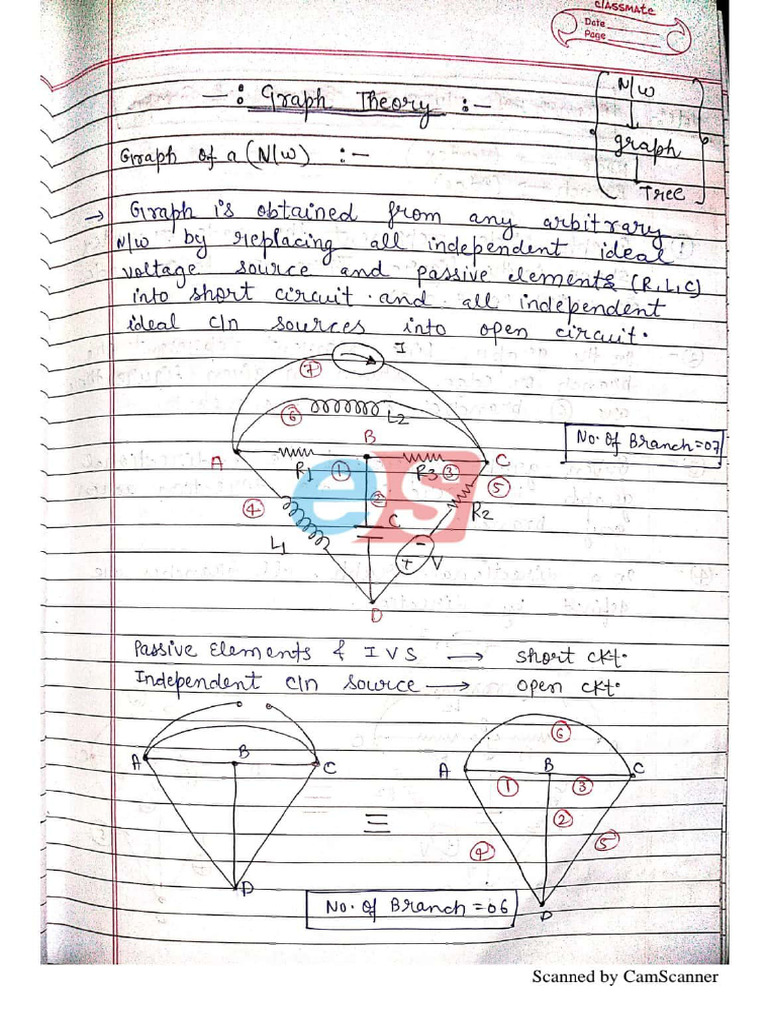 classmate
Date
Page
—: Graph Theory :—
N/w
graph
Tree
Graph of a (N/w) :—
→ Graph is obtained from any arbitrary
N/w by replacing all independent ideal
voltage source and passive elements (R,L,C)
into short circuit and all independent
ideal c/n sources into open circuit.
I
⑦
⑥ L2
B
No. of Branch=07
A R1 ① R3 ③ C
⑤
④ ② C R2
L1 + - V
D
Passive elements & I V S → short ckt.
Independent c/n source → open ckt.
⑥
A B C A B C
① ③
≡ ②
④ ⑤
D D
No. of Branch =06
es
Scanned by CamScanner